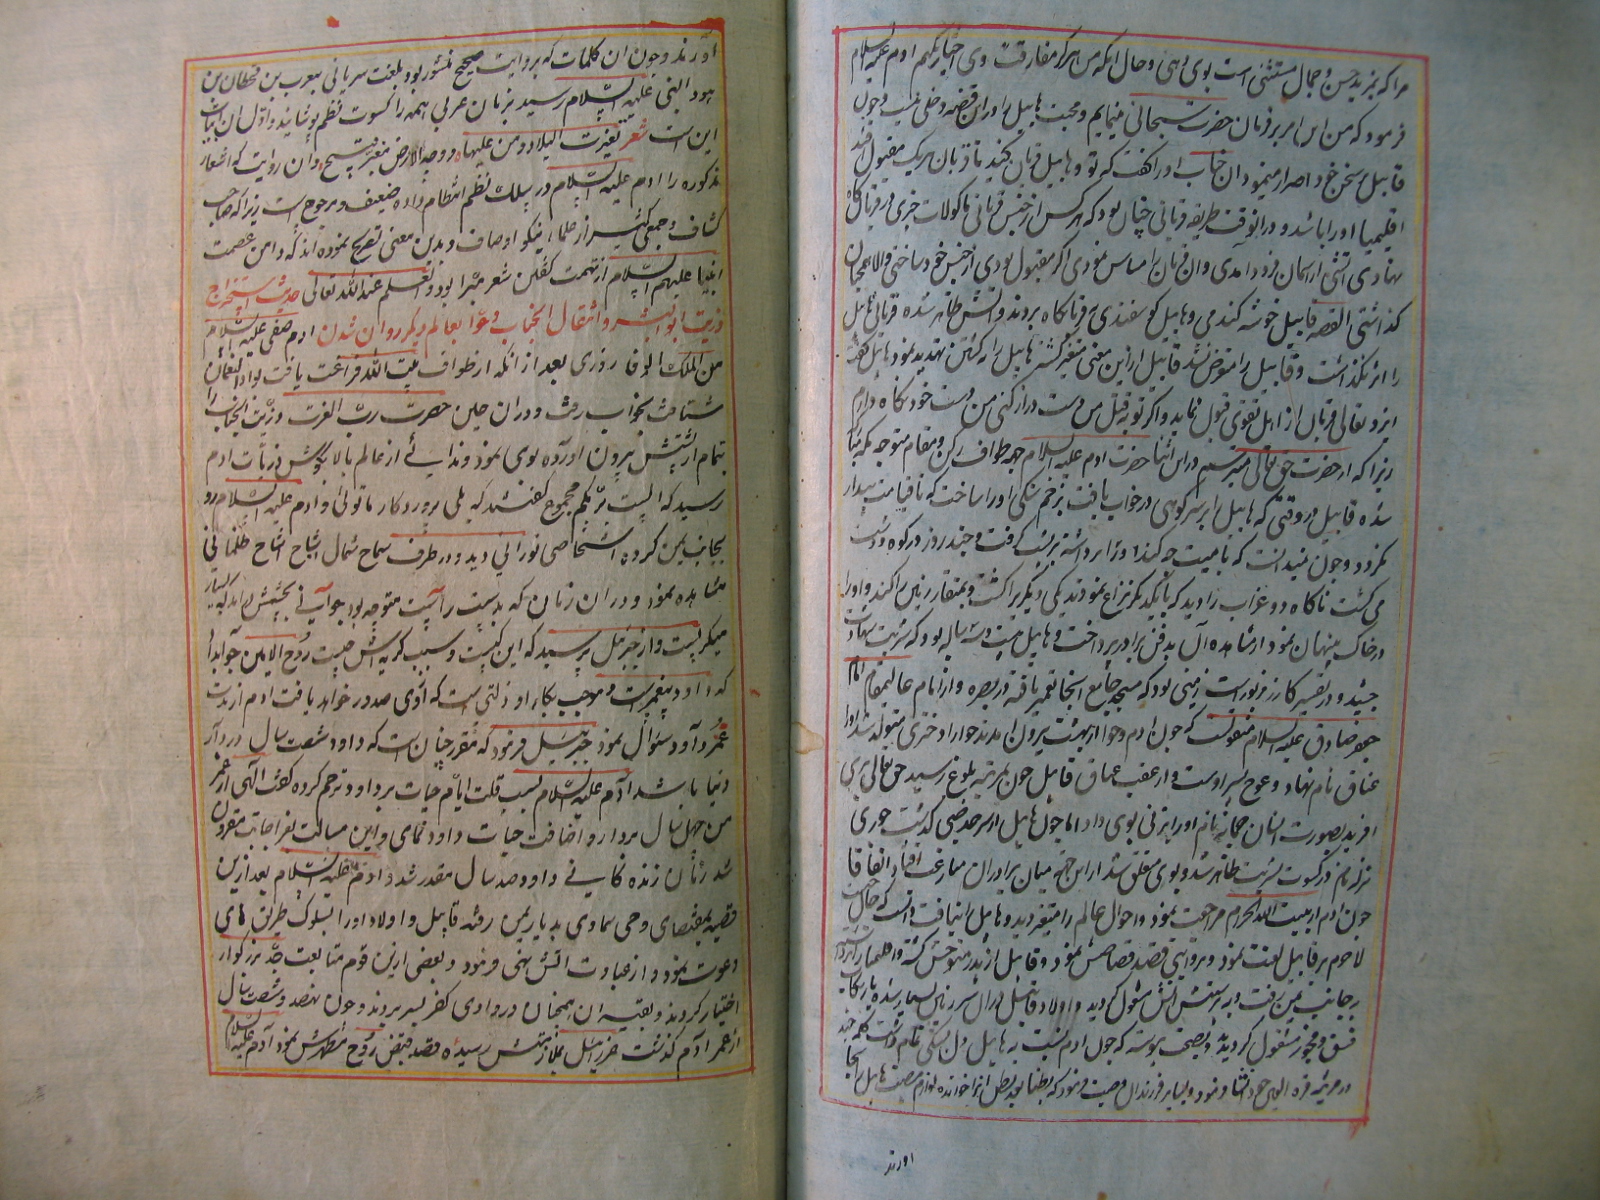 مرا که بمزید حسن و جمال مستثنی است بوی دهی و حال آنکه من هرگز مفارقت وی اختیار نکنم آدم علیه السلام
فرمود که من این امر بر فرمان حضرت سبحانی مینمایم و محبت هابیل را در این قضیه دخلی نیست و چون
قابیل بر سخن خود اصرار مینمود آن جناب او را گفت که تو و هابیل قربان کنید تا قربان هر یک مقبول افتد
اقلیمیا او را باشد و در آنوقت طریقه قربانی چنان بود که هر کس از جنس قربانی ماکولات چیزی در قربانگاه
نهادی آتشی از آسمان فرود آمدی و آن قربان را مساس نمودی اگر مقبول بودی از جنس خود ساختی والا همچنان
گذاشتی القصه قابیل خوشه گندمی و هابیل گوسفندی بقربانگاه بردند و آتش ظاهر شده قربانی هابیل
را اثر نگذاشت و قابیل را متعرض نشد قابیل ازین معنی متغیر گشته هابیل را بکشتن تهدید نمود هابیل گفت
ایزد تعالی قربان از اهل تقوی قبول نماید و اگر تو بقتل من دست دراز کنی من دست خود نگاه دارم
زیرا که از حضرت حق تعالی میترسم در این اثنا حضرت آدم علیه السلام جهه طواف رکن و مقام متوجه مکه
شده قابیل در وقتی که هابیل بر سر کوهی در خواب یافت بزخم سنگی او را ساخت که تا قیامت بیدار
نگردد و چون نمیدانست که با میت چه کند او را برداشته بر پشت گرفت و چند روز در کوه و دشت
می گشت ناگاه دو غراب را دید که با یکدیگر نزاع نمودند یکی دیگری را کشت و بمنقار زمین را کند و او را
در خاک پنهان نمود از مشاهده آن بدفن برادر پرداخت و هابیل بیست و سه ساله بود که شربت شهادت
چشید و در تفسیر کازر مزبور است زمینی بود که مسجد جامع آنجا تعمیر یافته در بصره و از امام عالیمقام امام
جعفر صادق علیه السلام منقولست که چون آدم و حوا از بهشت بیرون آمدند حوا را دختری متولد شد او را
عناق نام نهاد و عوج پسر اوست و از عقب عناق قابیل چون بمرتبه بلوغ رسید حق تعالی پری
آفرید بصورت انسان جمانه نام او را بزنی بوی داد اما چون هابیل از سرحد صبی گذشت حوری
نزله نام در کسوت بشریت ظاهر شد و بوی متعلق شد از این جهة میان برادران منازعت افتاد اتفاقا
چون آدم از بیت الله الحرام مراجعت نمود و احوال عالم را متغیر دید و هابیل را نیافت دانست که حال چیست
لاجرم بر قابیل لعنت نمود و بروایتی قصد قصاص نمود و قابیل از پدر متوحش گشته و اقلیما را
بجانب یمن رفت و بپرستش آتش مشغول گردید و اولاد قابیل در آن سرزمین بسیار شده بارتکاب
فسق و فجور مشغول گردیدند و بصحت پیوسته که چون آدم نسبت به هابیل دل بستگی تمام داشت کلمه چند
در مرثیه قرة العین خود انشاء نمود و بسایر فرزندان وصیت فرمود که بطنا بعد بطن آنرا خوانده لوازم مصیبت هابیل بجا
آورند
آورند و چون آن کلمات که بروایت صحیح منثور بود بلغت سریانی بیعرب بن قحطان بن
هود النبی علیه السلام رسید بزبان عربی همه را کسوت نظم پوشانید و اول آن ابیات
این است شعر تغیرت البلاد و من علیها، و وجه الارض مغبر قبیح، و آن روایت که اشعار
مذکوره را آدم علیه السلام در سلک نظم انتظام داده ضعیف و مرجوح است زیرا که صاحب
کشاف و جمعی کثیر از علماء نیکو اوصاف بدین معنی تصریح نموده اند که دامن عصمت
انبیا علیهم السلام از تهمت گفتن شعر مبرا بود والعلم عند الله تعالی حدیث استخراج
ذریت ابو البشر و انتقال آنجناب و حوا بعالم دیگر روان شدن آدم صفی علیه السلام
من الملک الوفا روزی بعد از آنکه از طواف بیت الله فراغت یافت بوادی النعمان
شتافت بخواب رفت و در آن حین حضرت رب العزت ذریت آنجناب را
بتمام از پشتش بیرون آورده بوی نمود و ندائی از عالم بالا بگوش ذریات آدم
رسید که الست بربکم مجموع گفتند که بلی پروردگار ما توئی و آدم علیه السلام رو
بجانب یمن کرده اشخاصی نورانی دید و در طرف شمال اشباح ظلمانی
مشاهده نمود و در آن زمان که بدست راست متوجه بود جوانی بچشمش درآمد که بسیار
میگریست و از جبرئیل پرسید که این کیست و سبب گریه اش چیست روح الامین جواب داد
که داود پیغمبر است و موجب بکاء او زلتی است که از وی صدور خواهد یافت آدم از مدت
عمر داود سؤال نمود جبرئیل فرمود که مقرر چنان است که داود شصت سال در دار
دنیا باشد آدم علیه السلام بسبب قلت ایام حیات بر داود ترحم کرده گفت الهی از عمر
من چهل سال بردار و اضافت حیات داود نمای و این مسالت بعز اجابت مقرون
شد زمان زنده گانی داود صد سال مقدر شد و آدم علیه السلام بعد ازین
قضیه بمقتضای وحی سماوی بدیار یمن رفته قابیل و اولاد او را بسلوک طریق هدی
دعوت نمود و از عبادت آتش نهی فرمود و بعضی از این قوم متابعت جد بزرگوار
اختیار کردند و بقیه ایشان همچنان در وادی کفر بسر بردند و چون نهصد و شصت سال
از عمر آدم گذشت عزرائیل بملازمتش رسیده قصد قبض روح مطهرش نمود آدم علیه السلام